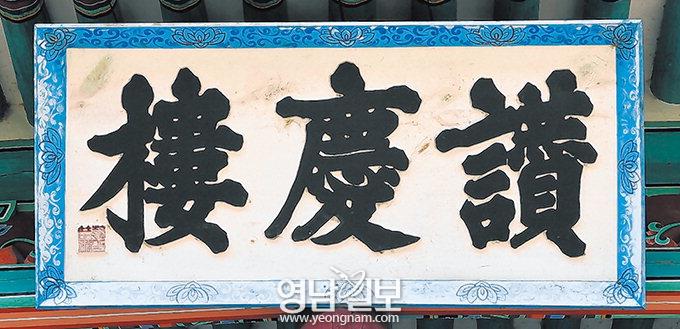 讚慶樓
영남일보
www.yeongnam.com